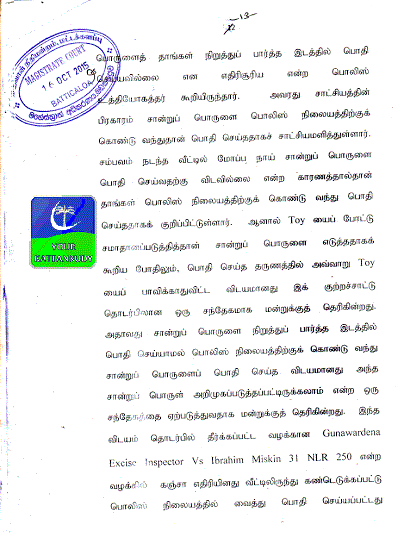 -13-
12
நீதிமன்றம், மட்டக்களப்பு
MAGISTRATE COURT
16 OCT 2015
BATTICALOA
பொருளைத் தாங்கள் நிறுத்துப் பார்த்த இடத்தில் பொதி
செய்யவில்லை என எதிரிசூரிய என்ற பொலிஸ்
உத்தியோகத்தர் கூறியிருந்தார். அவரது சாட்சியத்தின்
பிரகாரம் சான்றுப் பொருளை பொலிஸ் நிலையத்திற்குக்
கொண்டு வந்துதான் பொதி செய்ததாகச் சாட்சியமளித்துள்ளார்.
சம்பவம் நடந்த வீட்டில் மோப்ப நாய் சான்றுப் பொருளை
பொதி செய்வதற்கு விடவில்லை என்ற காரணத்தால்தான்
தாங்கள் பொலிஸ் நிலையத்திற்குக் கொண்டு வந்து பொதி
செய்ததாகக் குறிப்பிட்டுள்ளார். ஆனால் Toy யைப் போட்டு
சமாதானப்படுத்தித்தான் சான்றுப் பொருளை எடுத்ததாகக்
கூறிய போதிலும், பொதி செய்த தருணத்தில் அவ்வாறு Toy
யைப் பாவிக்காதுவிட்ட விடயமானது இக் குற்றச்சாட்டு
தொடர்பிலான ஒரு சந்தேகமாக மன்றுக்குத் தெரிகின்றது.
அதாவது சான்றுப் பொருளை நிறுத்துப் பார்த்த இடத்தில்
பொதி செய்யாமல் பொலிஸ் நிலையத்திற்குக் கொண்டு வந்து
சான்றுப் பொருளைப் பொதி செய்த விடயமானது அந்த
சான்றுப் பொருள் அறிமுகப்படுத்தப்பட்டிருக்கலாம் என்ற ஒரு
சந்தேகத்தை ஏற்படுத்துவதாக மன்றுக்குத் தெரிகின்றது. இந்த
விடயம் தொடர்பில் தீர்க்கப்பட்ட வழக்கான Gunawardena
Excise Inspector Vs Ibrahim Miskin 31 NLR 250 என்ற
வழக்கில் கஞ்சா எதிரியினது வீட்டிலிருந்து கண்டெடுக்கப்பட்டு
பொலிஸ் நிலையத்தில் வைத்து பொதி செய்யப்பட்டது
YOUR
KATTANKUDY